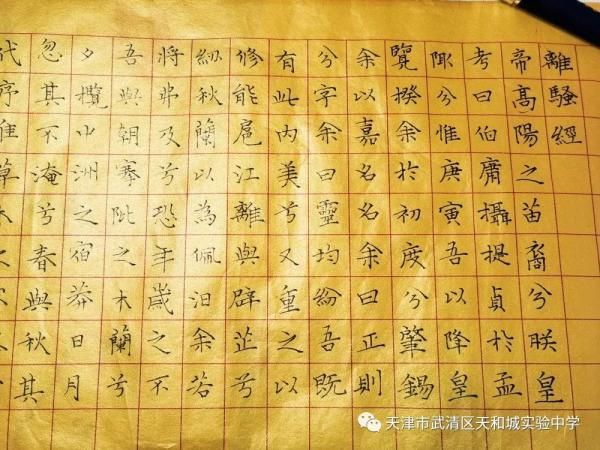 離騷經
帝高陽之苗裔兮朕皇
考曰伯庸攝提貞於孟
陬兮惟庚寅吾以降皇
覽揆余於初度兮肇錫
余以嘉名名余曰正則
兮字余曰靈均紛吾既
有此內美兮又重之以
修能扈江離與辟芷兮
紉秋蘭以為佩汩余若
將弗及兮恐年歲之不
吾與朝搴阰之木蘭兮
夕攬中洲之宿莽日月
忽其不淹兮春與秋其
代序惟草
天津市武清区天和城实验中学